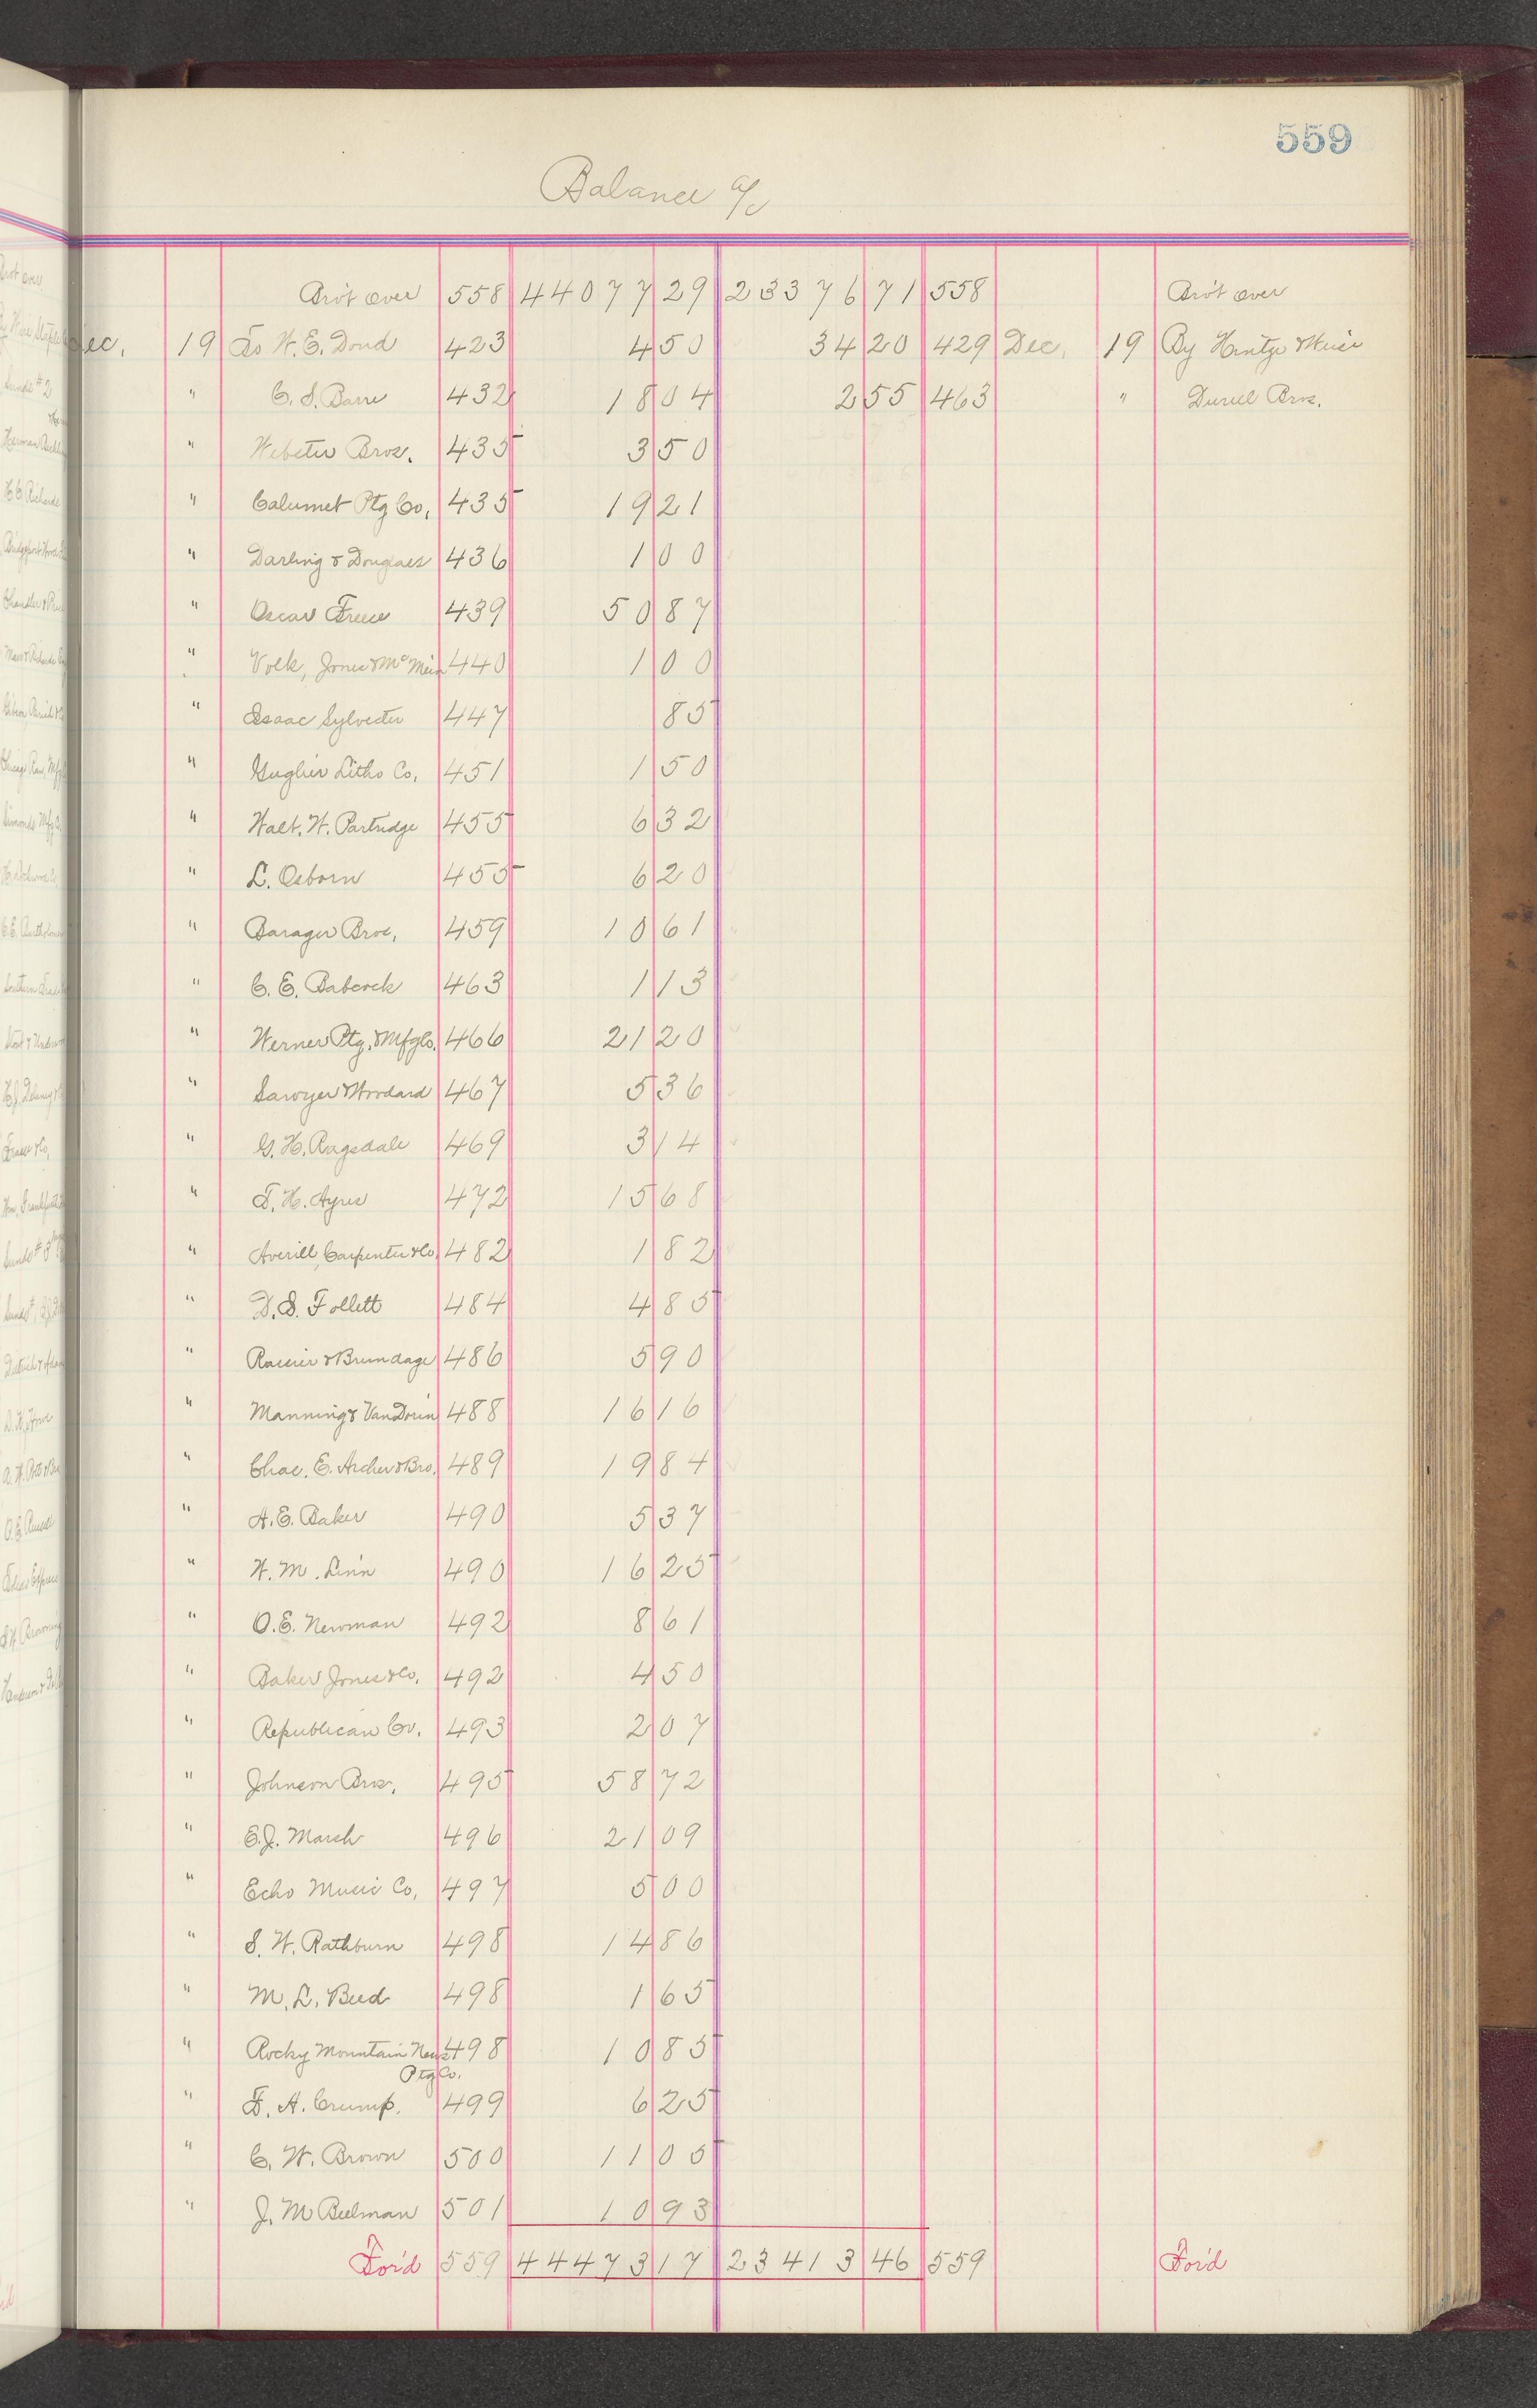 559
Balance a/c
Bro't over 558 44077 29 23376 71 558 Bro't over
Dec. 19 To W. E. Dowd 423 4 50 34 20 429 Dec. 19 By Hentze & Weise
" C. S. Barre 432 18 04 2 55 463 " Duvel Bros.
" Webster Bros. 435 3 50
" Calumet Ptg Co, 435 19 21
" Darling & Douglass 436 1 00
" Oscar Freese 439 50 87
" Volk, Jones & McMein 440 1 00
" Isaac Sylvester 447 85
" Gugler Litho Co, 451 1 50
" Walt. W. Partridge 455 6 32
" L. Osborn 455 6 20
" Barager Bros, 459 10 61
" C. E. Babcock 463 1 13
" Werner Ptg. & Mfg Co. 466 21 20
" Sawyer & Woodard 467 5 36
" G. H. Ragsdale 469 3 14
" F. H. Ayres 472 15 68
" Averill, Carpenter & Co. 482 1 82
" D. S. Follett 484 4 85
" & Brundage 486 5 90
" Manning & Van Doren 488 16 16
" Chas. E. Archer & Bro. 489 19 84
" A. E. Baker 490 5 37
" W. M. Linn 490 16 25
" O. E. Newman 492 8 61
" Baker Jones & Co. 492 4 50
" Republican Co. 493 2 07
" Johnson Bros. 495 58 72
" E. J. Marsh 496 21 09
" Echo Music Co, 497 5 00
" S. W. Rathburn 498 14 86
" M. L. 498 1 65
" Rocky Mountain News 498 10 85
Ptg Co.
" F. A. Crump. 499 6 25
" C. W. Brown 500 11 05
" J. M Beelman 501 10 93
For'd 559 44473 17 23413 46 559 For'd